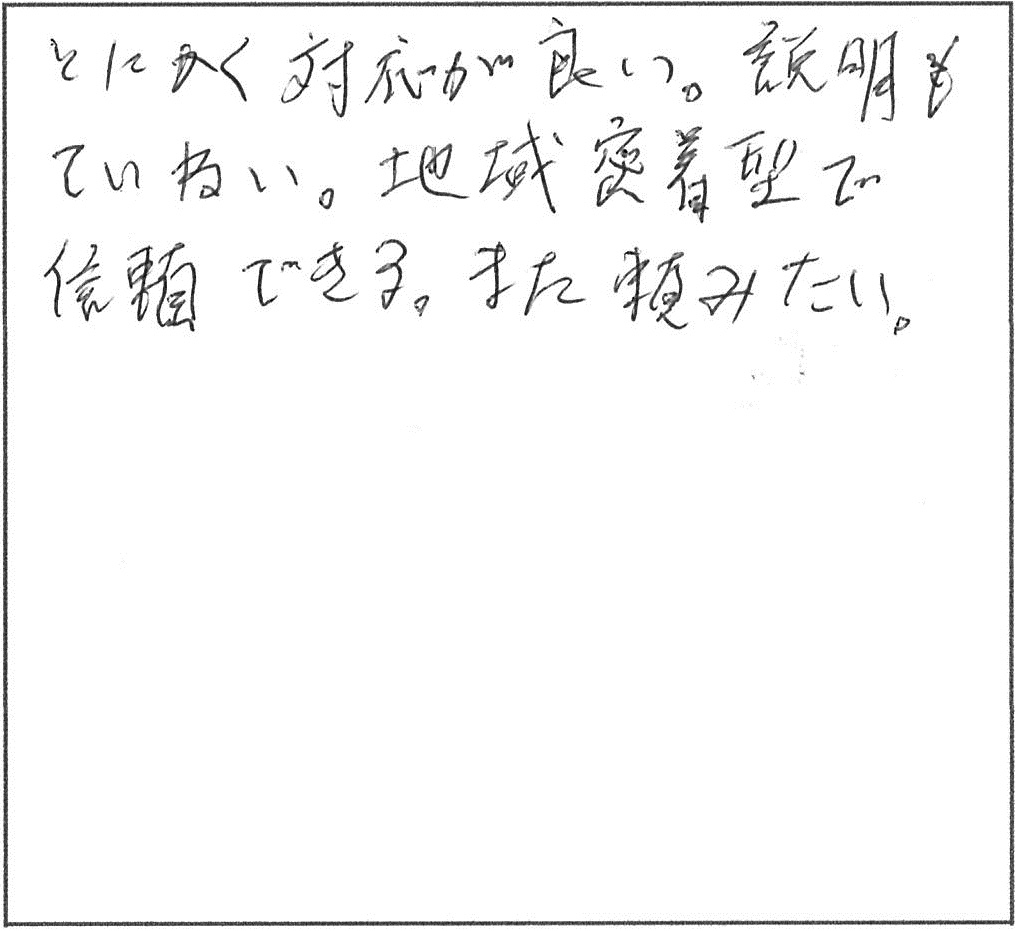 とにかく対応が良い。説明も
ていねい。地域密着型で
信頼できる。また頼みたい。